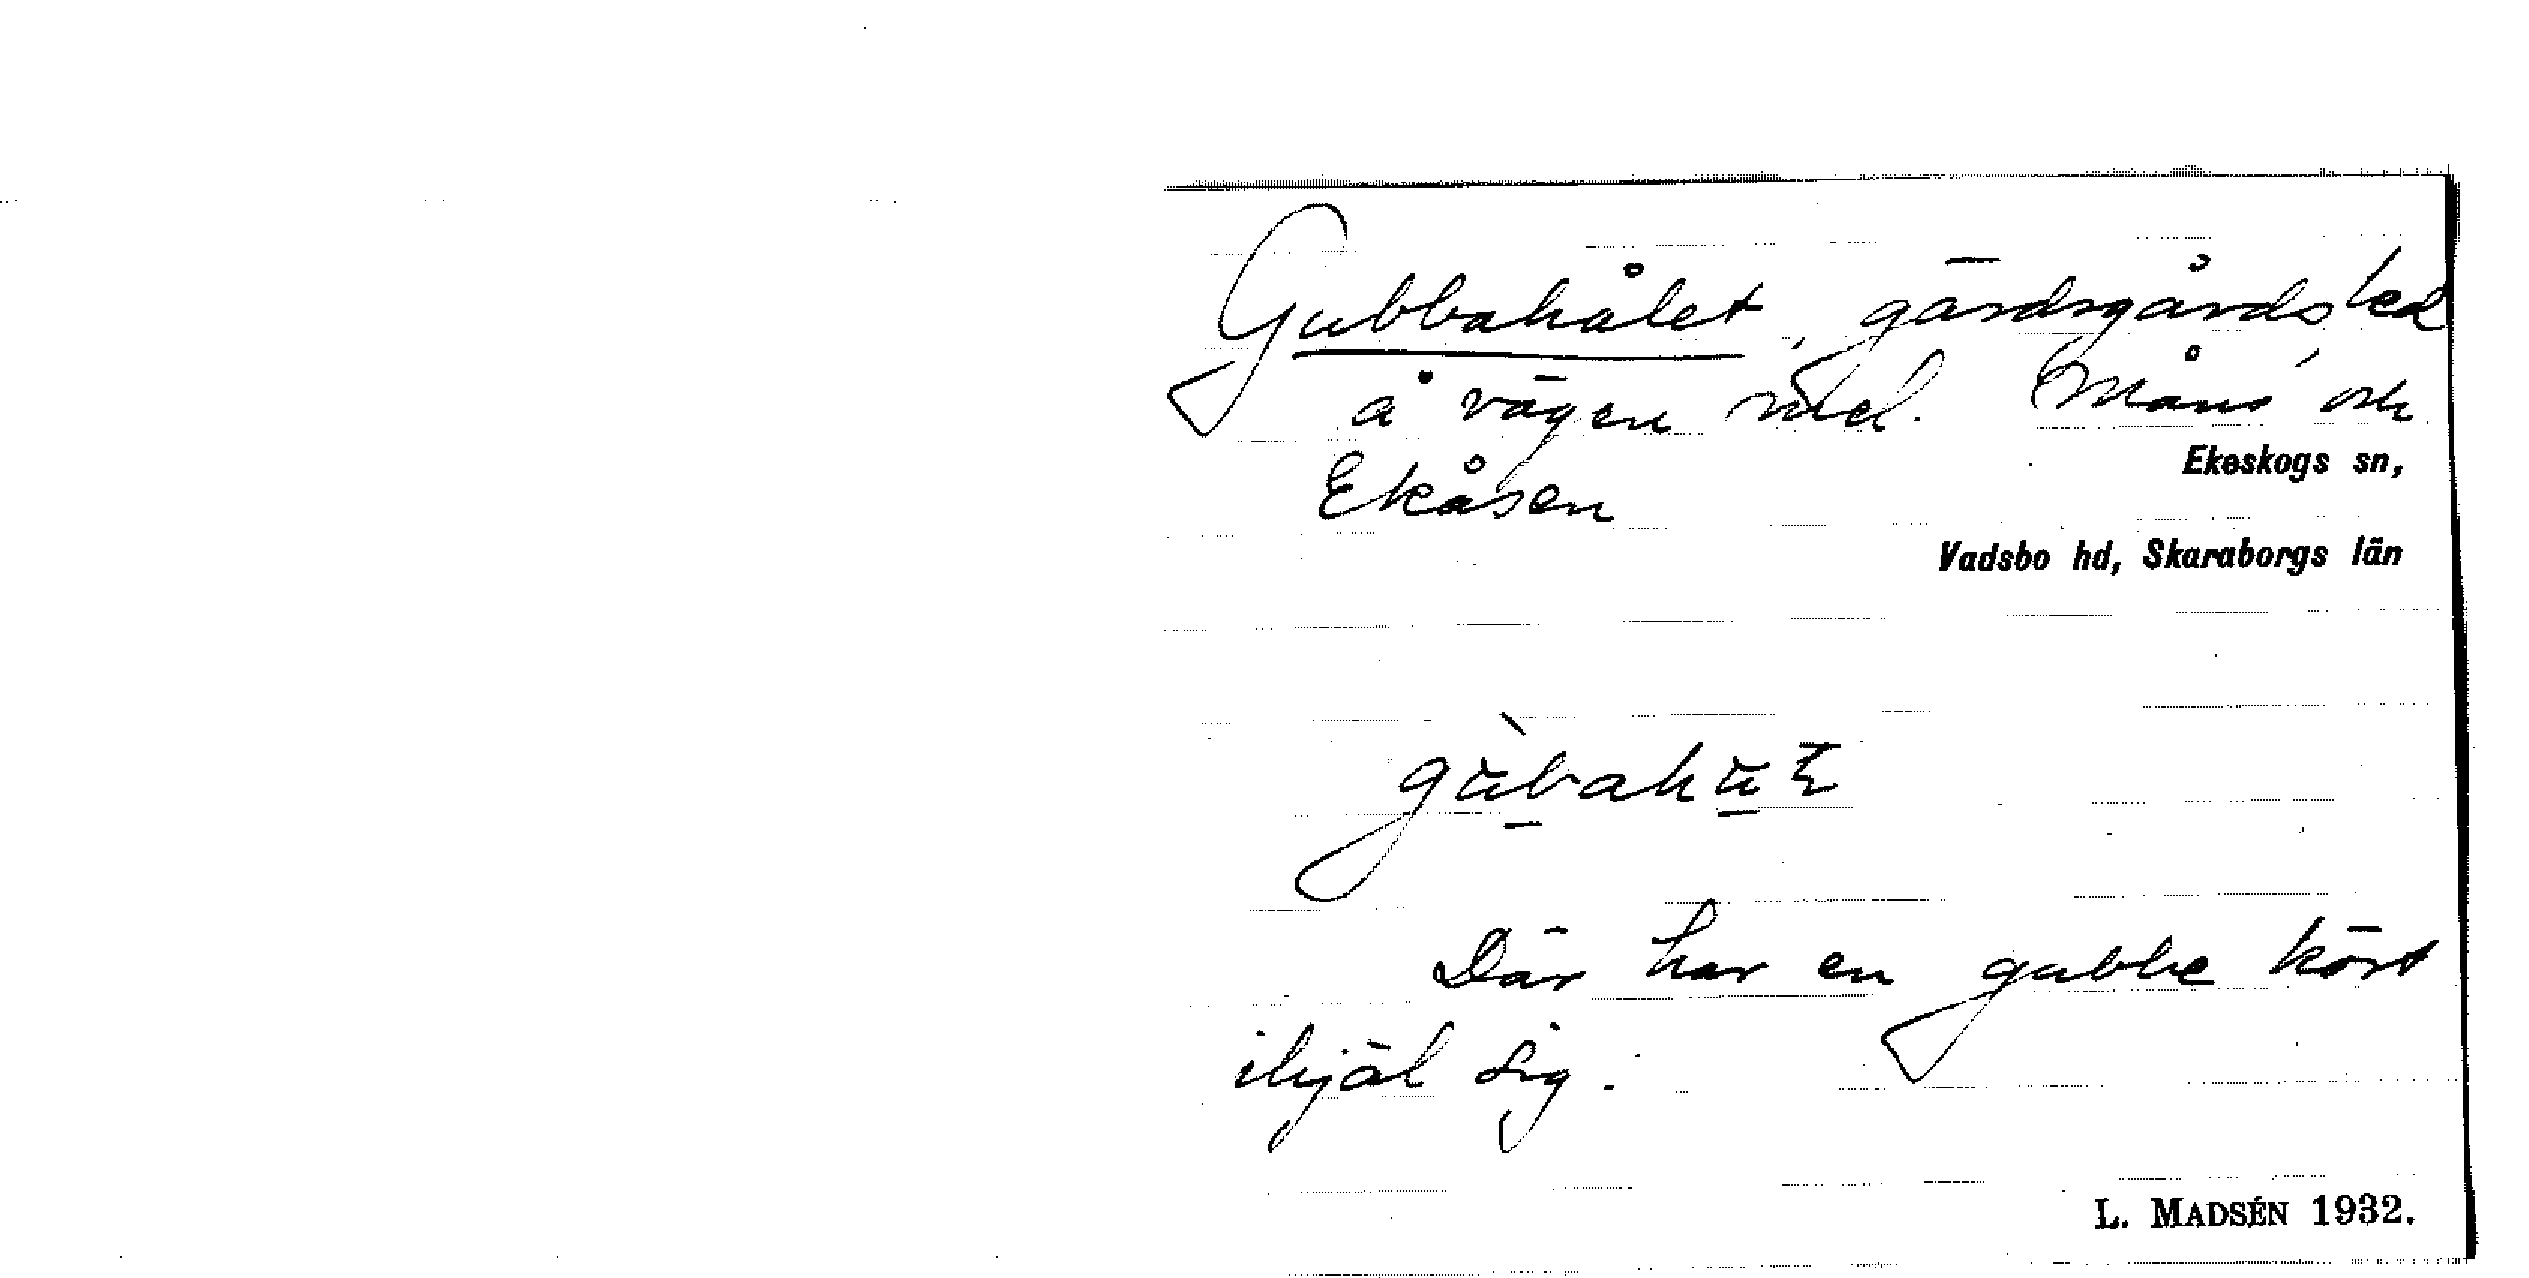 Gubbahålet, gärdsgårdsled
å vägen mel. Måns' och
Ekåsen
Ekeskogs sn,
Vadsbo hd, Skaraborgs län
Där har en gubbe kört
ihjäl sig.
L. MADSÉN 1932.